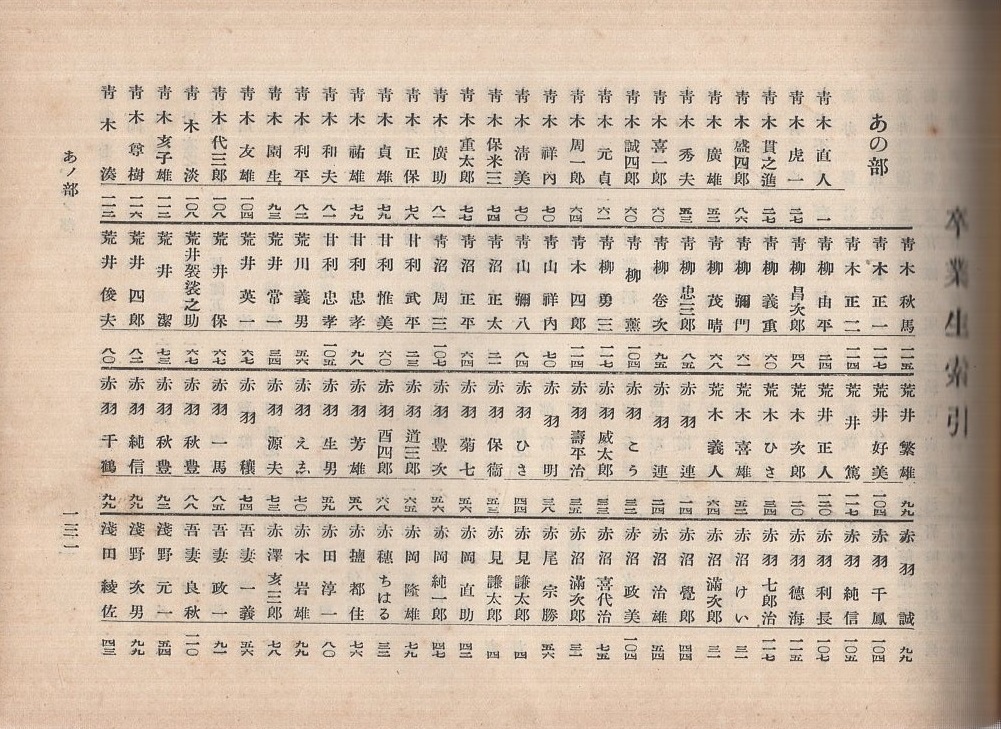 卒業生索引
あの部
青木直人 一
青木虎一 二七
青木貫之進 二七
青木盛四郎 八六
青木廣雄 五二
青木秀夫 五三
青木喜一郎 六〇
青木誠四郎 六〇
青木元貞 六二
青木周一郎 六四
青木祥內 七〇
青木淸美 七〇
青木保米三 七四
青木重太郎 七七
青木廣助 八一
青木正保 七八
青木貞雄 七九
青木祐雄 七九
青木和夫 八一
青木利平 八二
青木園生 九三
青木友雄 一〇四
青木代三郎 一〇八
青木淡 一〇八
青木亥子雄 一一三
青木尊樹 一一六
青木湊 一二三
青木秋馬 一二五
青木正一 一二四
青木正二 一二四
青柳由平 二四
青柳昌次郎 四八
青柳義重 六〇
青柳彌門 六一
青柳茂晴 六八
青柳忠三郎 八五
青柳卷次 九五
青柳薰 一〇四
青柳勇三 一二七
青木四郎 一二四
青山祥內 七〇
青山彌八 八四
青沼正太 二一
青沼正平 六四
青沼周三 一〇七
甘利武平 二三
甘利惟美 六〇
甘利忠孝 九八
甘利忠孝 一〇五
荒川義男 五六
荒井常一 三四
荒井英一 六七
荒井保 六七
荒井袈裟之助 六七
荒井潔 七三
荒井四郎 八二
荒井俊夫 八〇
荒井繁雄 九九
荒井好美 一〇四
荒井篤 一二七
荒井正人 一三〇
荒木次郎 二〇
荒木ひさ 三四
荒木喜雄 五二
荒木義人 六三
赤羽連 一四
赤羽連 二四
赤羽こう 三四
赤羽威太郎 三三
赤羽壽平治 三三
赤羽明 三八
赤羽ひさ 四四
赤羽保衞 五三
赤羽菊七 五六
赤羽豊次 五六
赤羽道三郎 六五
赤羽酉四郎 六八
赤羽芳雄 五九
赤羽生男 五九
赤羽ゑゑ 七〇
赤羽源夫 六三
赤羽穰 七四
赤羽一馬 八五
赤羽秋豊 八八
赤羽秋豊 九三
赤羽純信 九九
赤羽千鶴 九九
赤羽誠 九九
赤羽千鳳 一〇四
赤羽純信 一〇五
赤羽利長 一〇七
赤羽德海 一二五
赤羽七郎治 一一七
赤沼けい 三一
赤沼滿次郎 三一
赤沼覺郎 四四
赤沼治雄 五四
赤沼政美 一〇四
赤沼喜代治 七五
赤沼滿次郎 三一
赤尾宗勝 五六
赤見謙太郎 四
赤見謙太郎 四
赤岡直助 四二
赤岡純一郎 四七
赤岡隆雄 七九
赤穗ちはる 三二
赤摭都住 七六
赤田淳一 八〇
赤木岩雄 七九
赤澤亥三郎 七八
吾妻一義 五六
吾妻政一 九一
吾妻良秋 一一〇
淺野元一 五四
淺野次男 九九
淺田綾佐 四三
あノ部
一三一